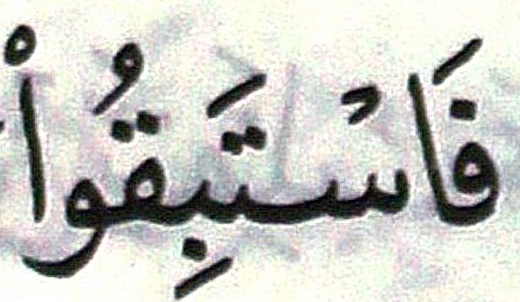 فَاسْتَبِقُواْ